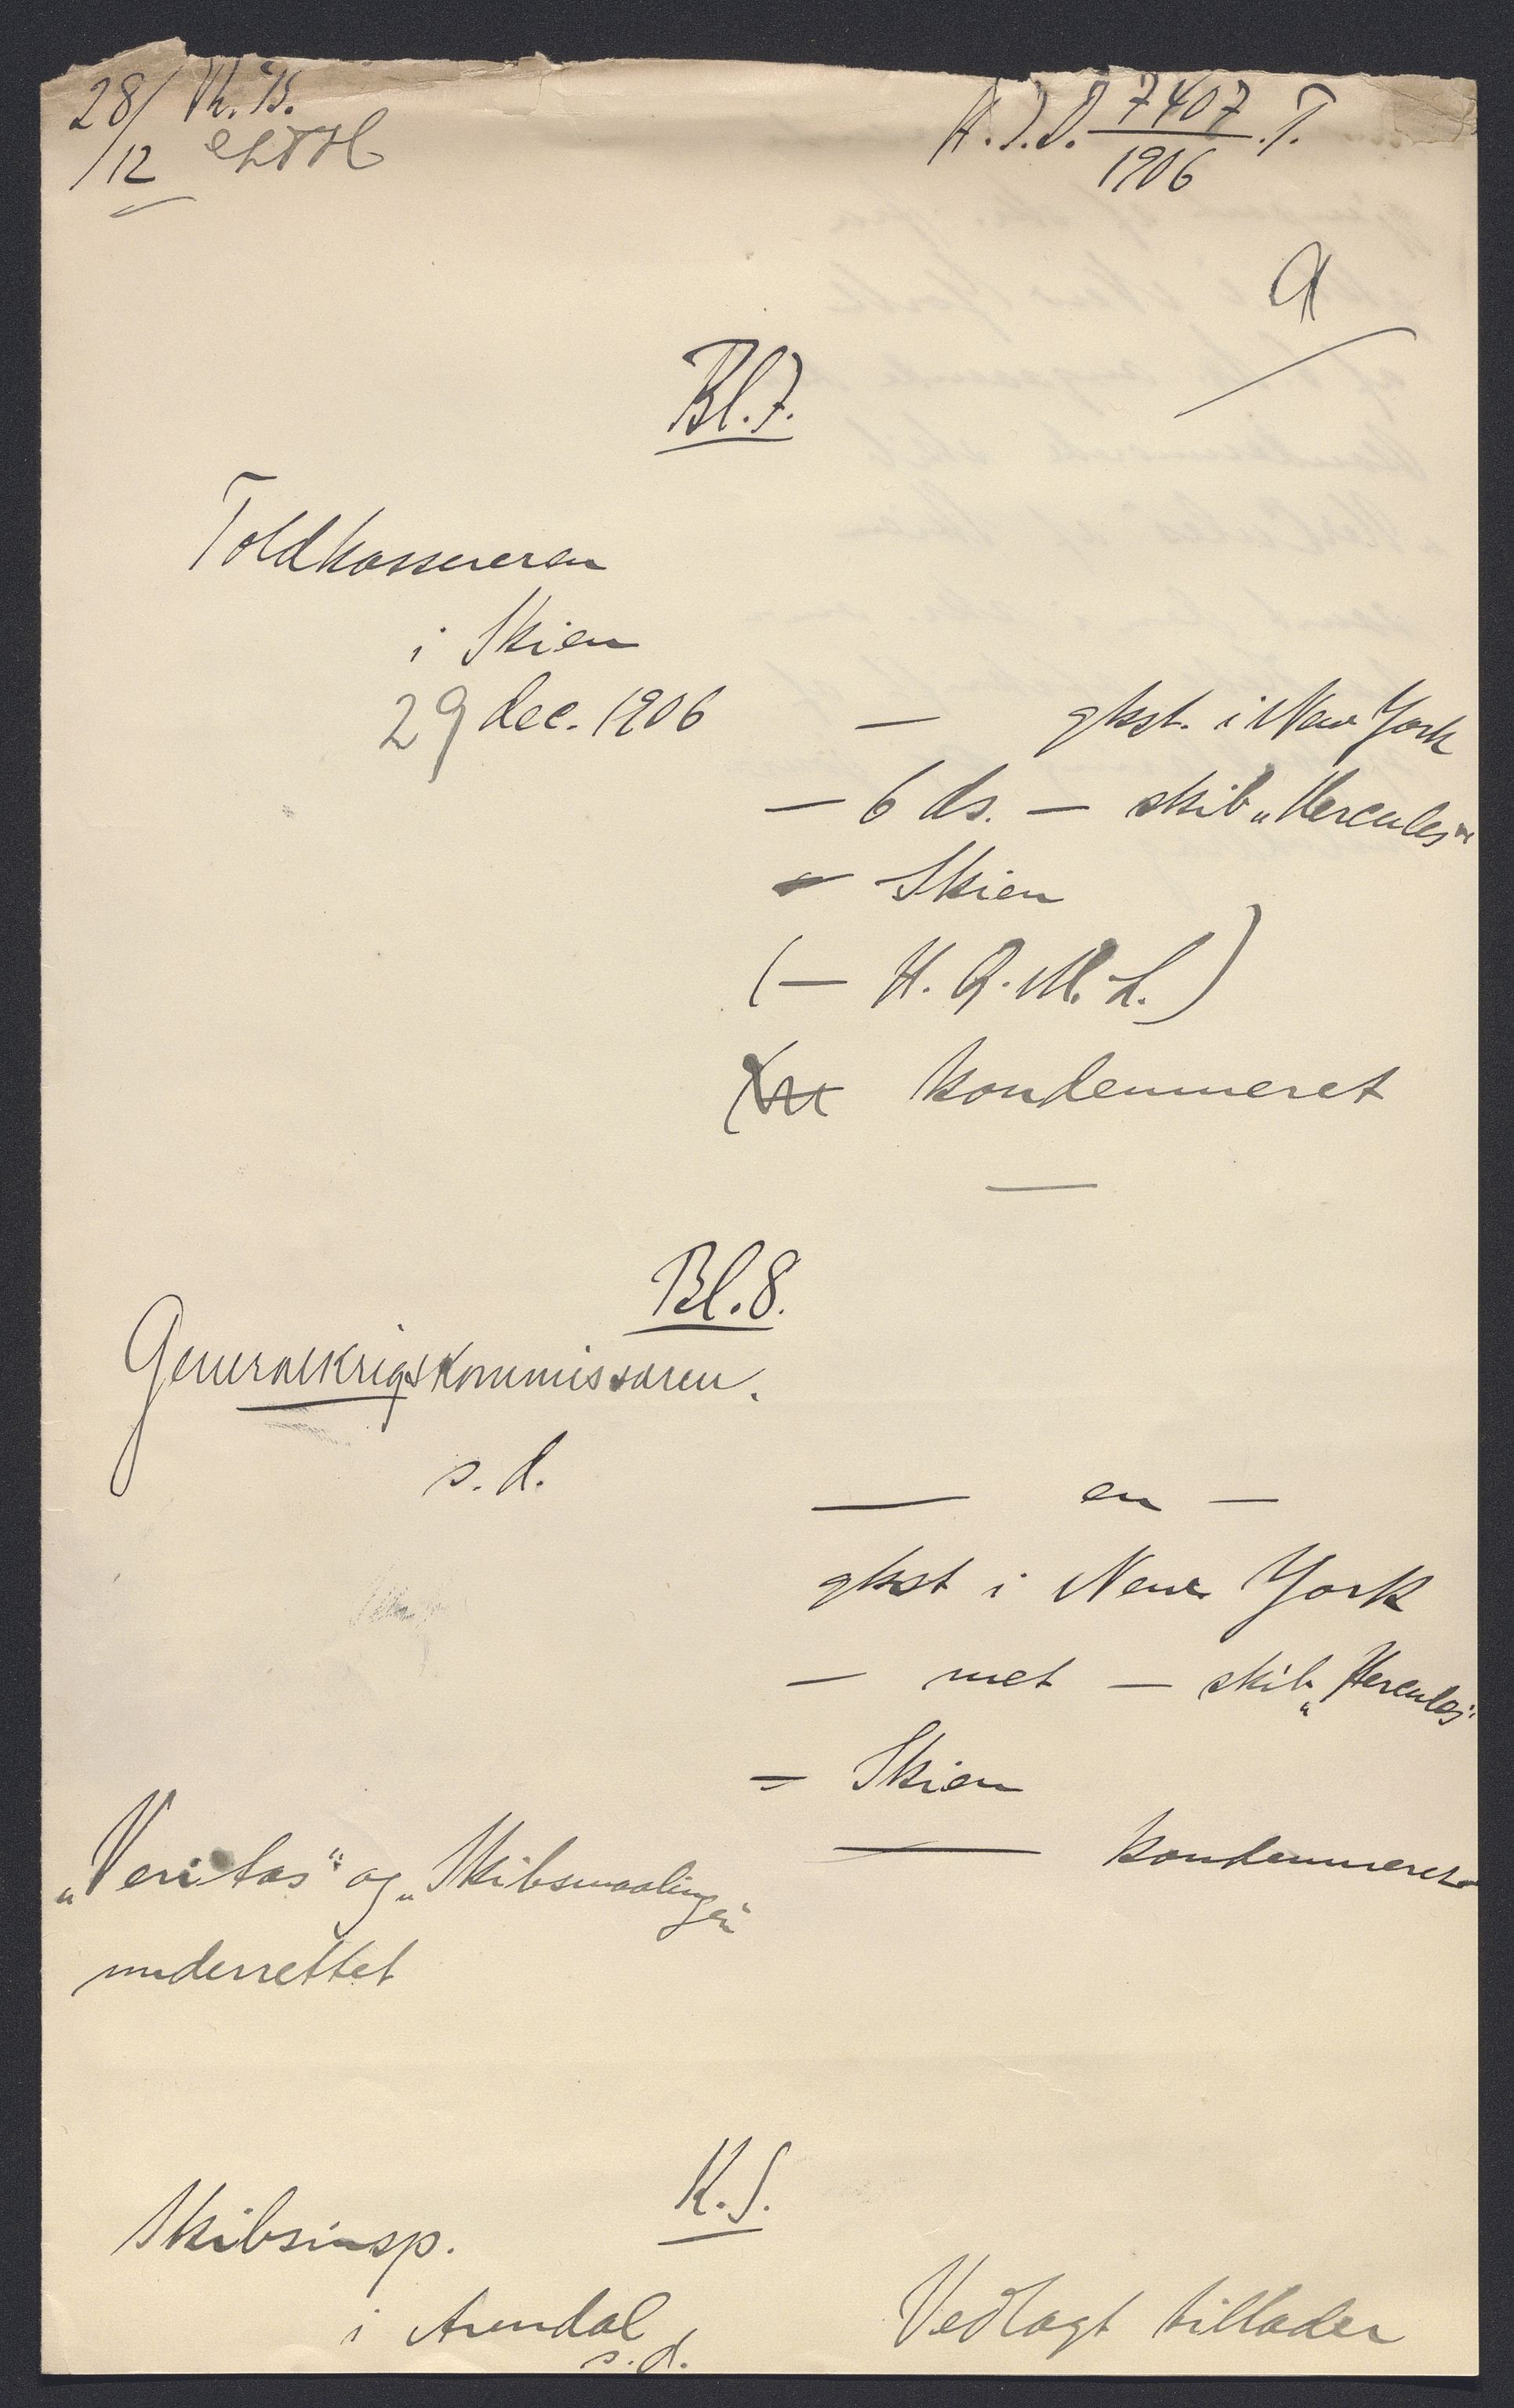 28/12 Th. B.
H.I.D. 7407/1906 . T.
a
Bl. 7.
Toldkassereren
i Skien
29 dec. 1906
— gkst. i New York
— 6 ds. — skib „Hercules"
— Skien
(— H. Q. M. L.)
kondemneret
—
Bl. 8.
Generalkrigskommissæren.
s. d.
— en —
gkst i New York
— met — skib „Hercules"
— Skien
— kondemneret
„Veritas" og „Skibsmaalingen"
underrettet
K. S.
Skibsinsp.
i Arendal
s. d.
Vedlagt tillader